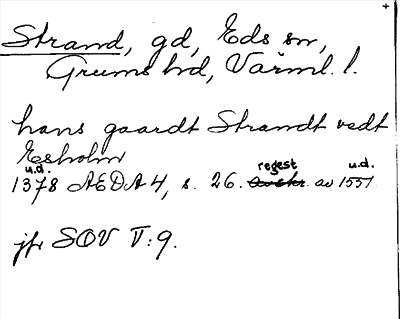 +
Strand, gd, Eds sn,
Grums hd, Värml. l.
hans gaardt Strandt vedt
Esholm
u.d. regest u.d.
1378 AEDA 4, s. 26. avskr. av 1551.
jfr SOV V:9.